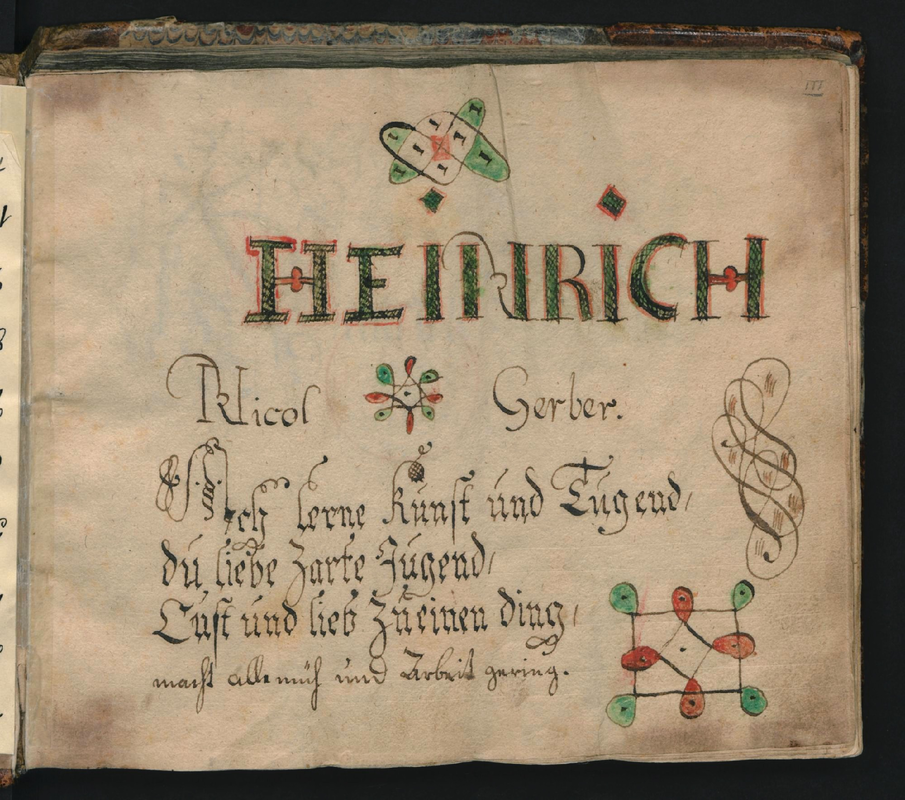 HEINRICH
Nicol Gerber.
Ach lerne Kunst und Tugend,
du liebe Zarte Jugend,
Lust und lieb Zu einen ding,
macht alle müh und Arbeit gering.